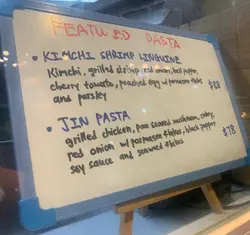 FEATURED PASTA
• KIMCHI SHRIMP LINGUINE
Kimchi, grilled shrimp, red onion, bell pepper,
cherry tomato, poached egg w/ parmesan flakes
and parsley $88
• JIN PASTA
grilled chicken, pan seared mushroom, celery,
red onion w/ parmesan flakes, black pepper
soy sauce and seaweed flakes $78